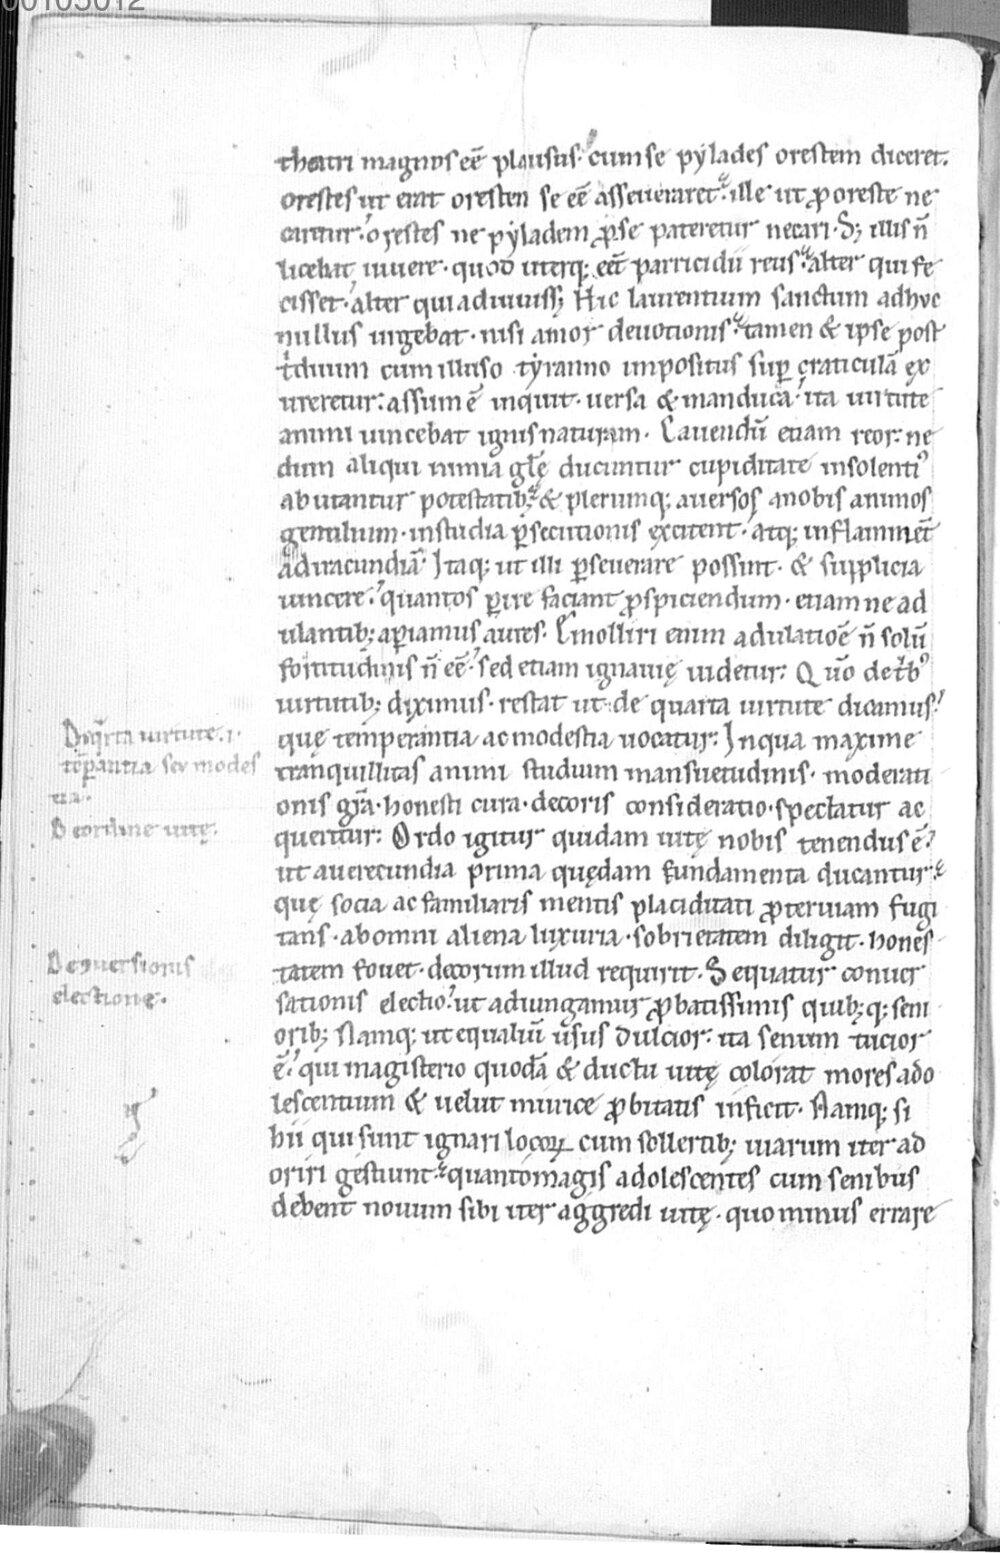 00105012
theatri magnus eē plausus· cum se pẏlades orestem diceret·
orestes ut erat oresten se eē asseueraret· ille ut ꝓ oreste ne
caretur· orestes ne pẏladem ꝓ se pateretur necari· S; illis n̄
licebat uiuere· quod uterq; eēt parricidii reus· alter qui fe
cisset· alter qui adiuuiss; Hic laurentium sanctum ad hoc
nullus urgebat· nisi amor deuotionis· tamen & ipse post
tͥduum cum illuso tẏranno impositus suꝑ craticulā ex
ureretur: assum ē inquit· uersa & manduca· ita uirtute
animi uincebat ignis naturam· Cauendū etiam reor: ne
dum aliqui nimia glę̄ ducuntur cupiditate insolentiꝰ
abutantur potestatib; & plerumq; auersos a nobis animos
gentilium· in studia ꝑsecutionis excitent· atq; inflammēt
ad iracundiā· Itaq; ut illi ꝑseuerare possint· & supplicia
uincere· quantos ꝑire faciant ꝓspiciendum· etiam ne ad
ulantib; aꝑiamus aures· Emolliri enim adulatioē n̄ solū
fortitudinis n̄ eē· sed etiam ignauię uidetur: Qūo de tͥbꝰ
uirtutib; diximus· restat ut de quarta uirtute dicamus·
quę temperantia ac modestia uocatur: In qua maxime
tranquillitas animi studium mansuetudinis· moderati
onis gr̄a· honesti cura· decoris consideratio· spectatur ac
queritur: Ordo igitur quidam uitę nobis tenendus ē·
ut a uerecundia prima quędam fundamenta ducantur·
quę socia ac familiaris mentis placiditati ꝓteruiam fugi
tans· ab omni aliena luxuria· sobrietatem diligit· hones
tatem fouet· decorum illud requirit· Sequatur conuer
sationis electio· ut adiungamur ꝓbatissimis quib;q; seni
orib; Namq; ut equaliū usus dulcior: ita senum tucior
ē· qui magisterio quodā & ductu uitę colorat mores ado
lescentium & uelut murice ꝓbitatis inficit· Namq; si
hii qui sunt ignari locoꝝ cum sollertib; uiarum iter ad
oriri gestiunt· quanto magis adolescentes cum senibus
debent nouum sibi iter aggredi uitę· quo minus errare
De qͣrta uirtute· i·
tēꝑantia seu modes
tia·
De ordine uitę·
De ꝯuersionis
electione·